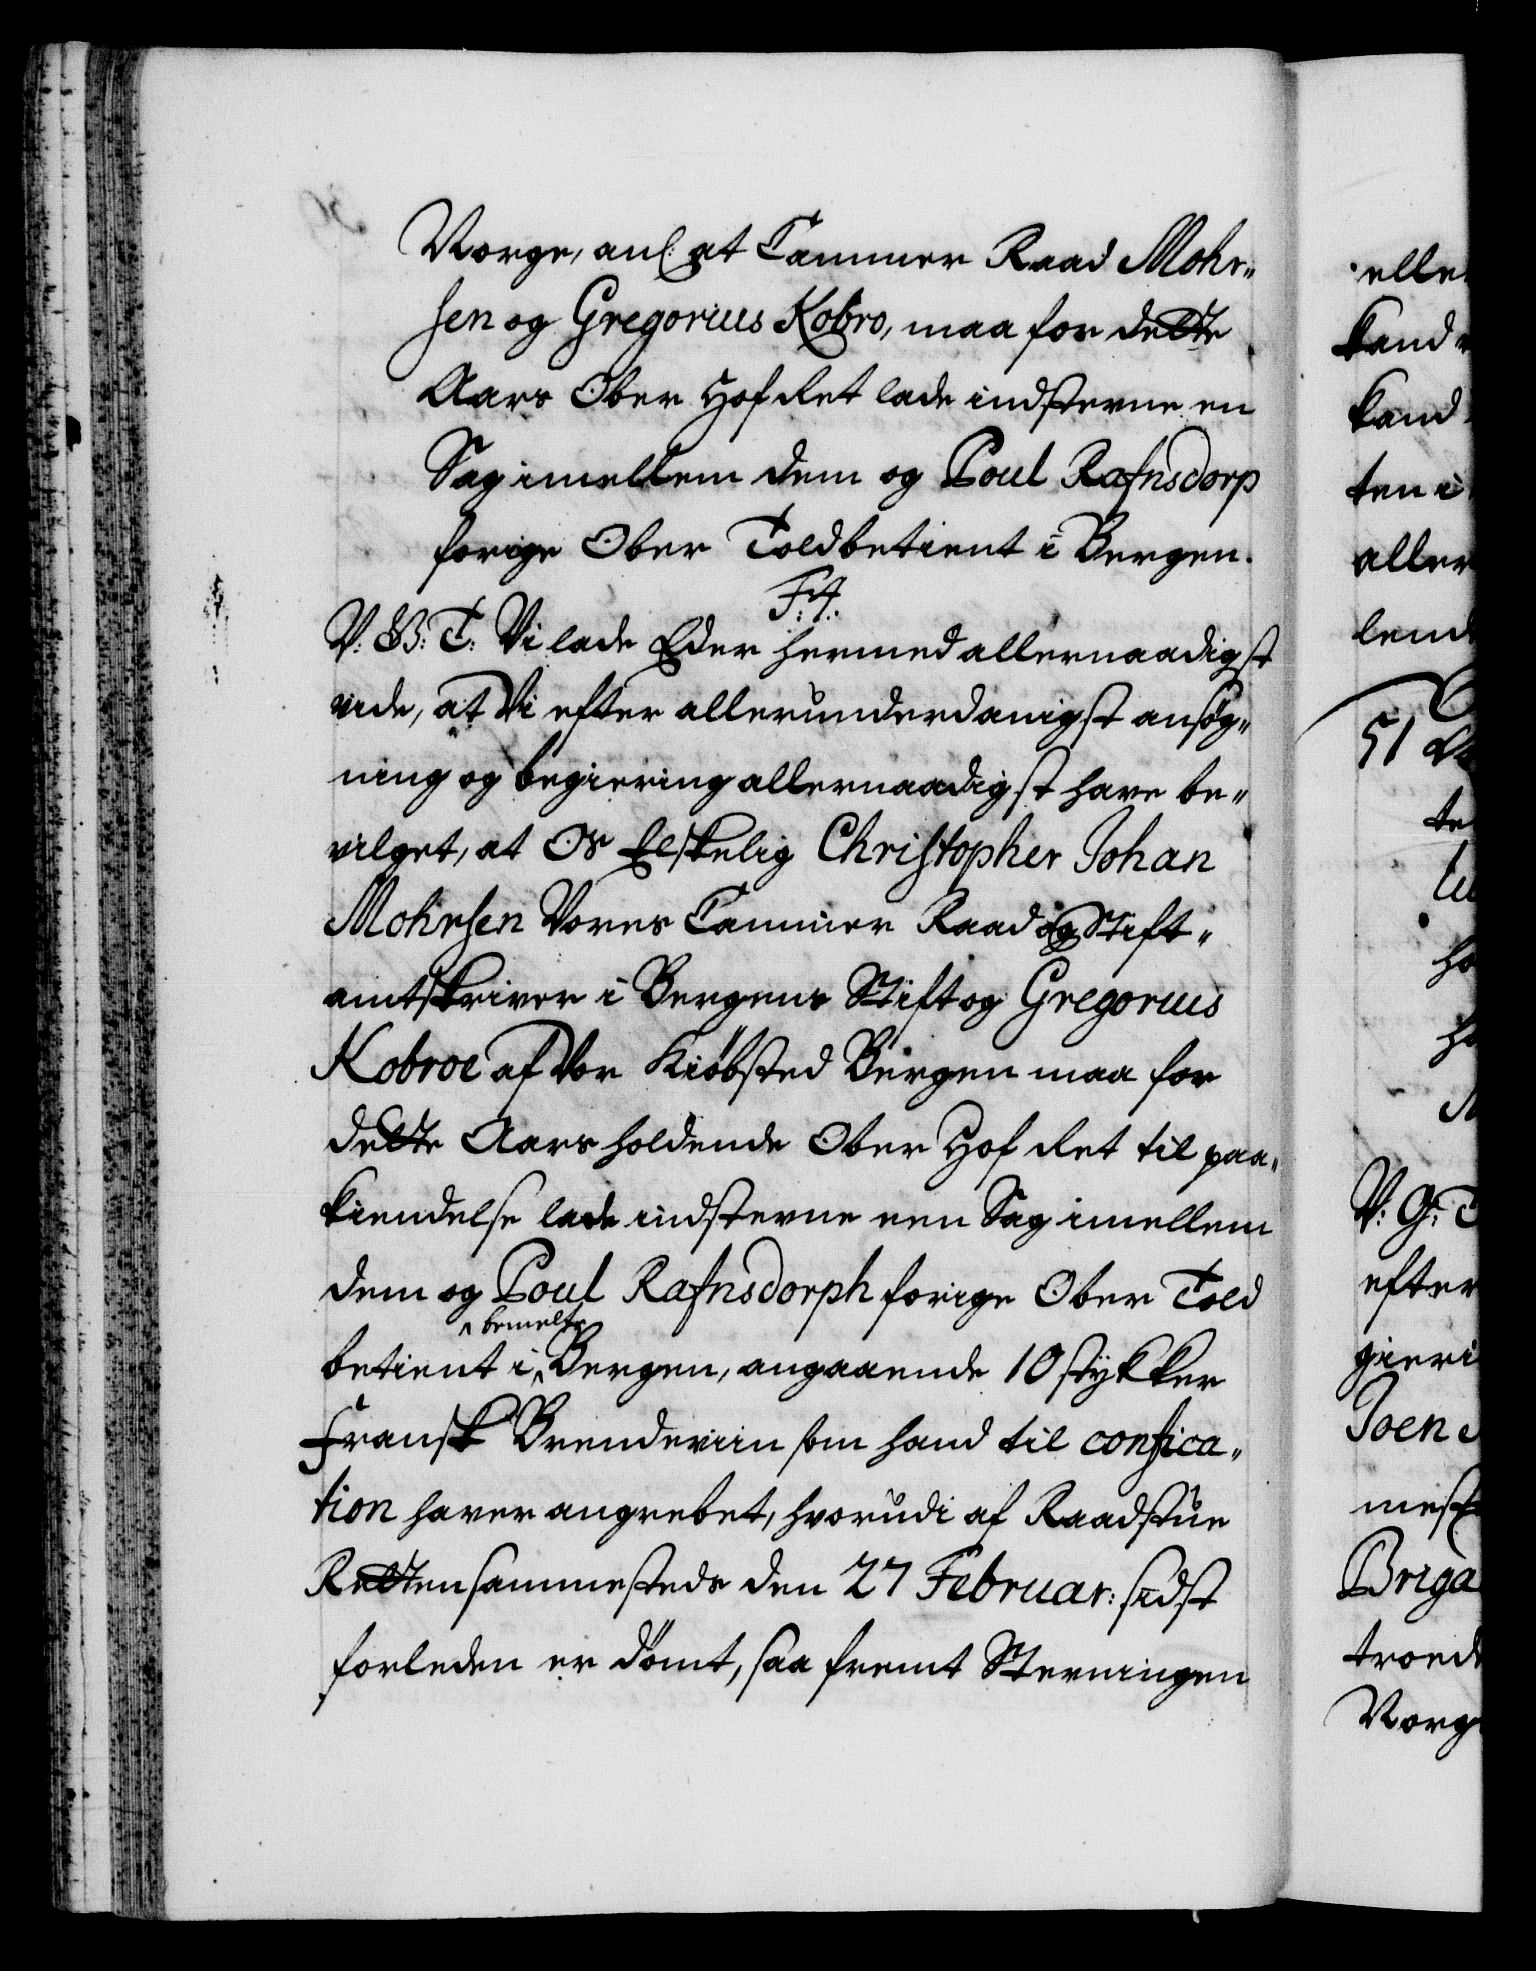 Norge, anl: at Cammer Raad Mohr„
sen og Gregorius Kobro, maa for dette
Aars Ober Hof Ret lade indstevne en
Sag imellem dem og Poul Rafnsdorp
forige Ober Toldbetient i Bergen.
F: 4.
V: G: T: Vi lade Eder hermed allernaadigst
vide, at Vi efter allerunderdanigst ansøg„
ning og begiering allernaadigst have be„
vilget, at Os Elskelig Christopher Johan
Mohrsen Vores Cammer Raad og Stift„
amtskriver i Bergens Stift og Gregorius
Kobroe af Vor Kiøbsted Bergen maa for
dette Aars holdende Ober Hof Ret til paa„
kiendelse lade indstevne een Sag imellem
dem og Poul Rafnsdorph forige Ober Told
betient i bemelte Bergen, angaaende 10 stykker
Fransk Brendeviin som hand til confisca„
tion haver angrebet, hvorudi af Raadstue
Retten sammesteds den 27 Februar: sidst
forleden er dømt, saa fremt Stevningen
elle
kand
kand
ten i
aller
lend
51
te
ho
V: G: T
efter
gieri
Joen
mest
Briga
troed
Norg